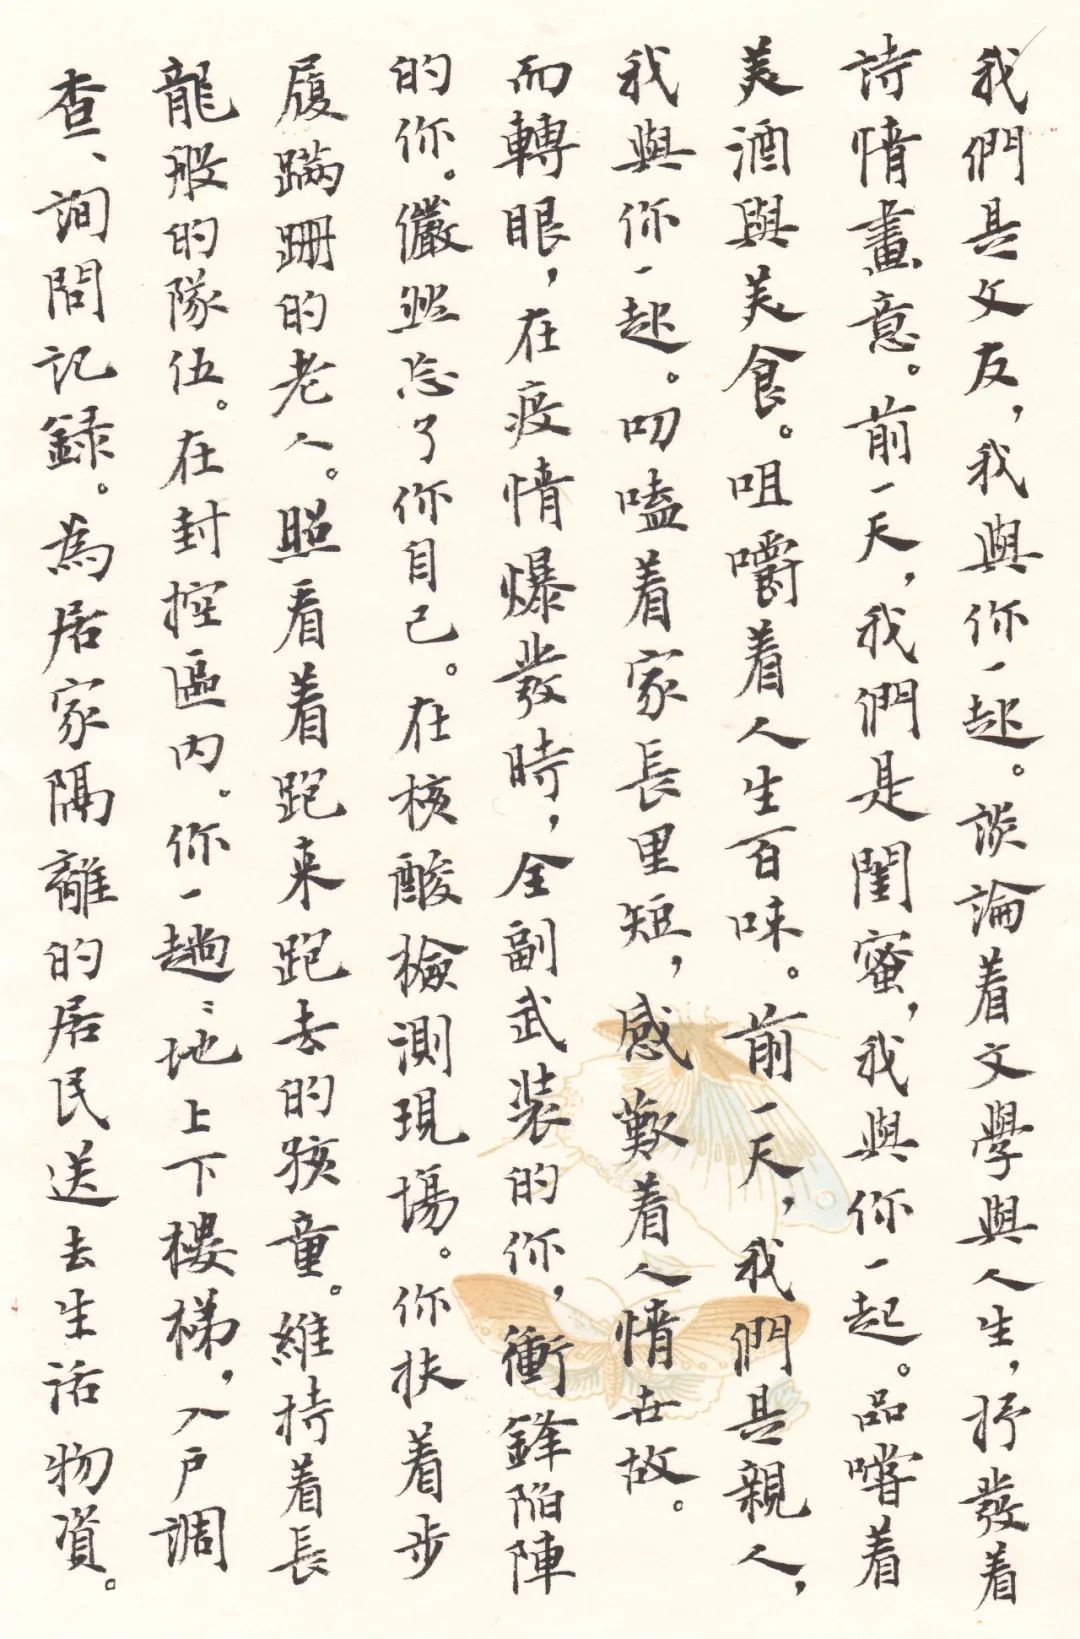 我們是文友，我與你一起。談論着文學與人生，抒發着
詩情畫意。前一天，我們是閨蜜，我與你一起。品嚐着
美酒與美食。咀嚼着人生百味。前一天，我們是親人，
我與你一起。叨嗑着家長里短，感歎着人情世故。
而轉眼，在疫情爆發時，全副武装的你，衝鋒陷陣
的你。儼然忘了你自己。在核酸檢測現場。你扶着步
履蹒跚的老人。照看着跑来跑去的孩童。維持着長
龍般的隊伍。在封控區内。你一趟〻地上下樓梯，入户調
查、詢問記録。為居家隔離的居民送去生活物資。